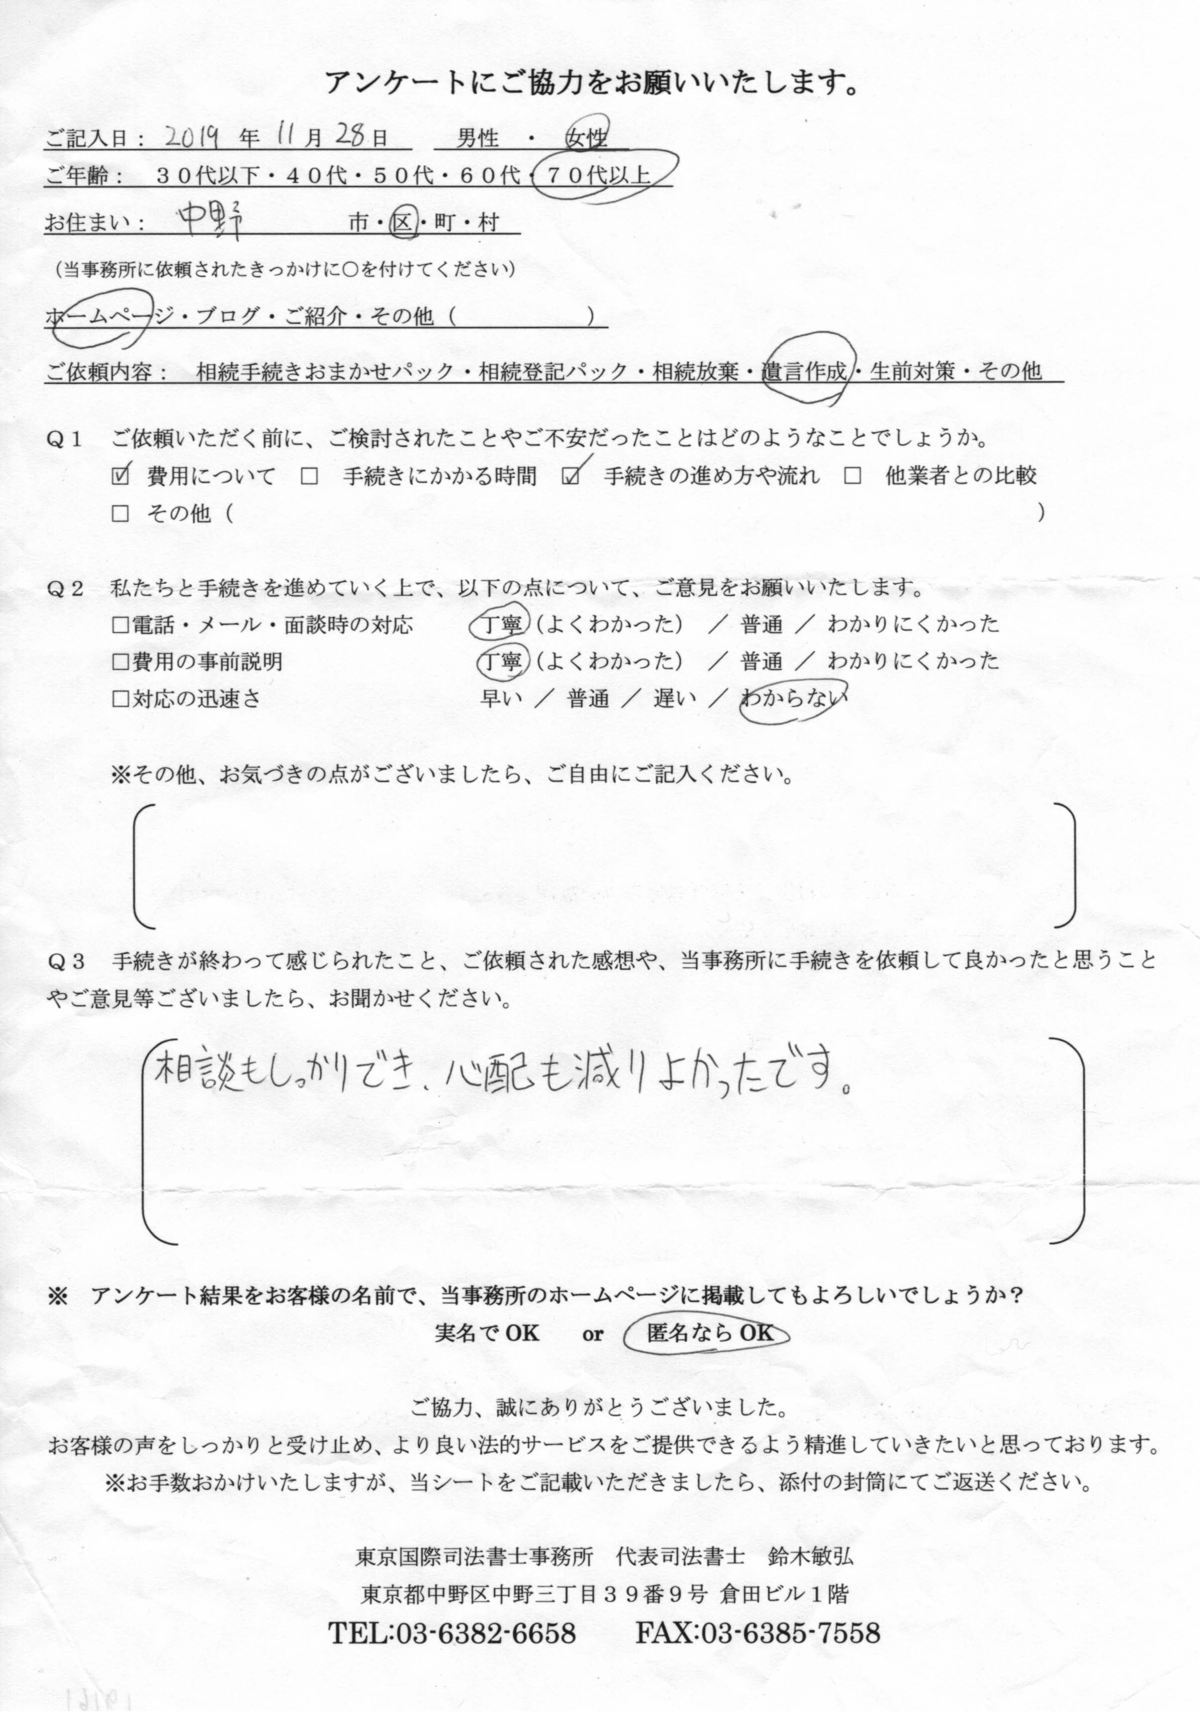 アンケートにご協力をお願いいたします。
ご記入日： 2019 年 11 月 28 日　男性 ・ 女性
ご年齢： ３０代以下・４０代・５０代・６０代・７０代以上
お住まい： 中野 市・区・町・村
（当事務所に依頼されたきっかけに○を付けてください）
ホームページ・ブログ・ご紹介・その他（　　　　　　）
ご依頼内容： 相続手続きおまかせパック・相続登記パック・相続放棄・遺言作成・生前対策・その他
Ｑ１　ご依頼いただく前に、ご検討されたことやご不安だったことはどのようなことでしょうか。
☑ 費用について □ 手続きにかかる時間 ☑ 手続きの進め方や流れ □ 他業者との比較
□ その他（　　　　　　）
Ｑ２　私たちと手続きを進めていく上で、以下の点について、ご意見をお願いいたします。
□電話・メール・面談時の対応　丁寧（よくわかった） ／ 普通 ／ わかりにくかった
□費用の事前説明　丁寧（よくわかった） ／ 普通 ／ わかりにくかった
□対応の迅速さ　早い ／ 普通 ／ 遅い ／ わからない
※その他、お気づきの点がございましたら、ご自由にご記入ください。
Ｑ３　手続きが終わって感じられたこと、ご依頼された感想や、当事務所に手続きを依頼して良かったと思うこと
やご意見等ございましたら、お聞かせください。
相談もしっかりでき、心配も減りよかったです。
※　アンケート結果をお客様の名前で、当事務所のホームページに掲載してもよろしいでしょうか？
実名で OK　or　匿名なら OK
ご協力、誠にありがとうございました。
お客様の声をしっかりと受け止め、より良い法的サービスをご提供できるよう精進していきたいと思っております。
※お手数おかけいたしますが、当シートをご記載いただきましたら、添付の封筒にてご返送ください。
東京国際司法書士事務所　代表司法書士　鈴木敏弘
東京都中野区中野三丁目３９番９号 倉田ビル１階
TEL:03-6382-6658　FAX:03-6385-7558